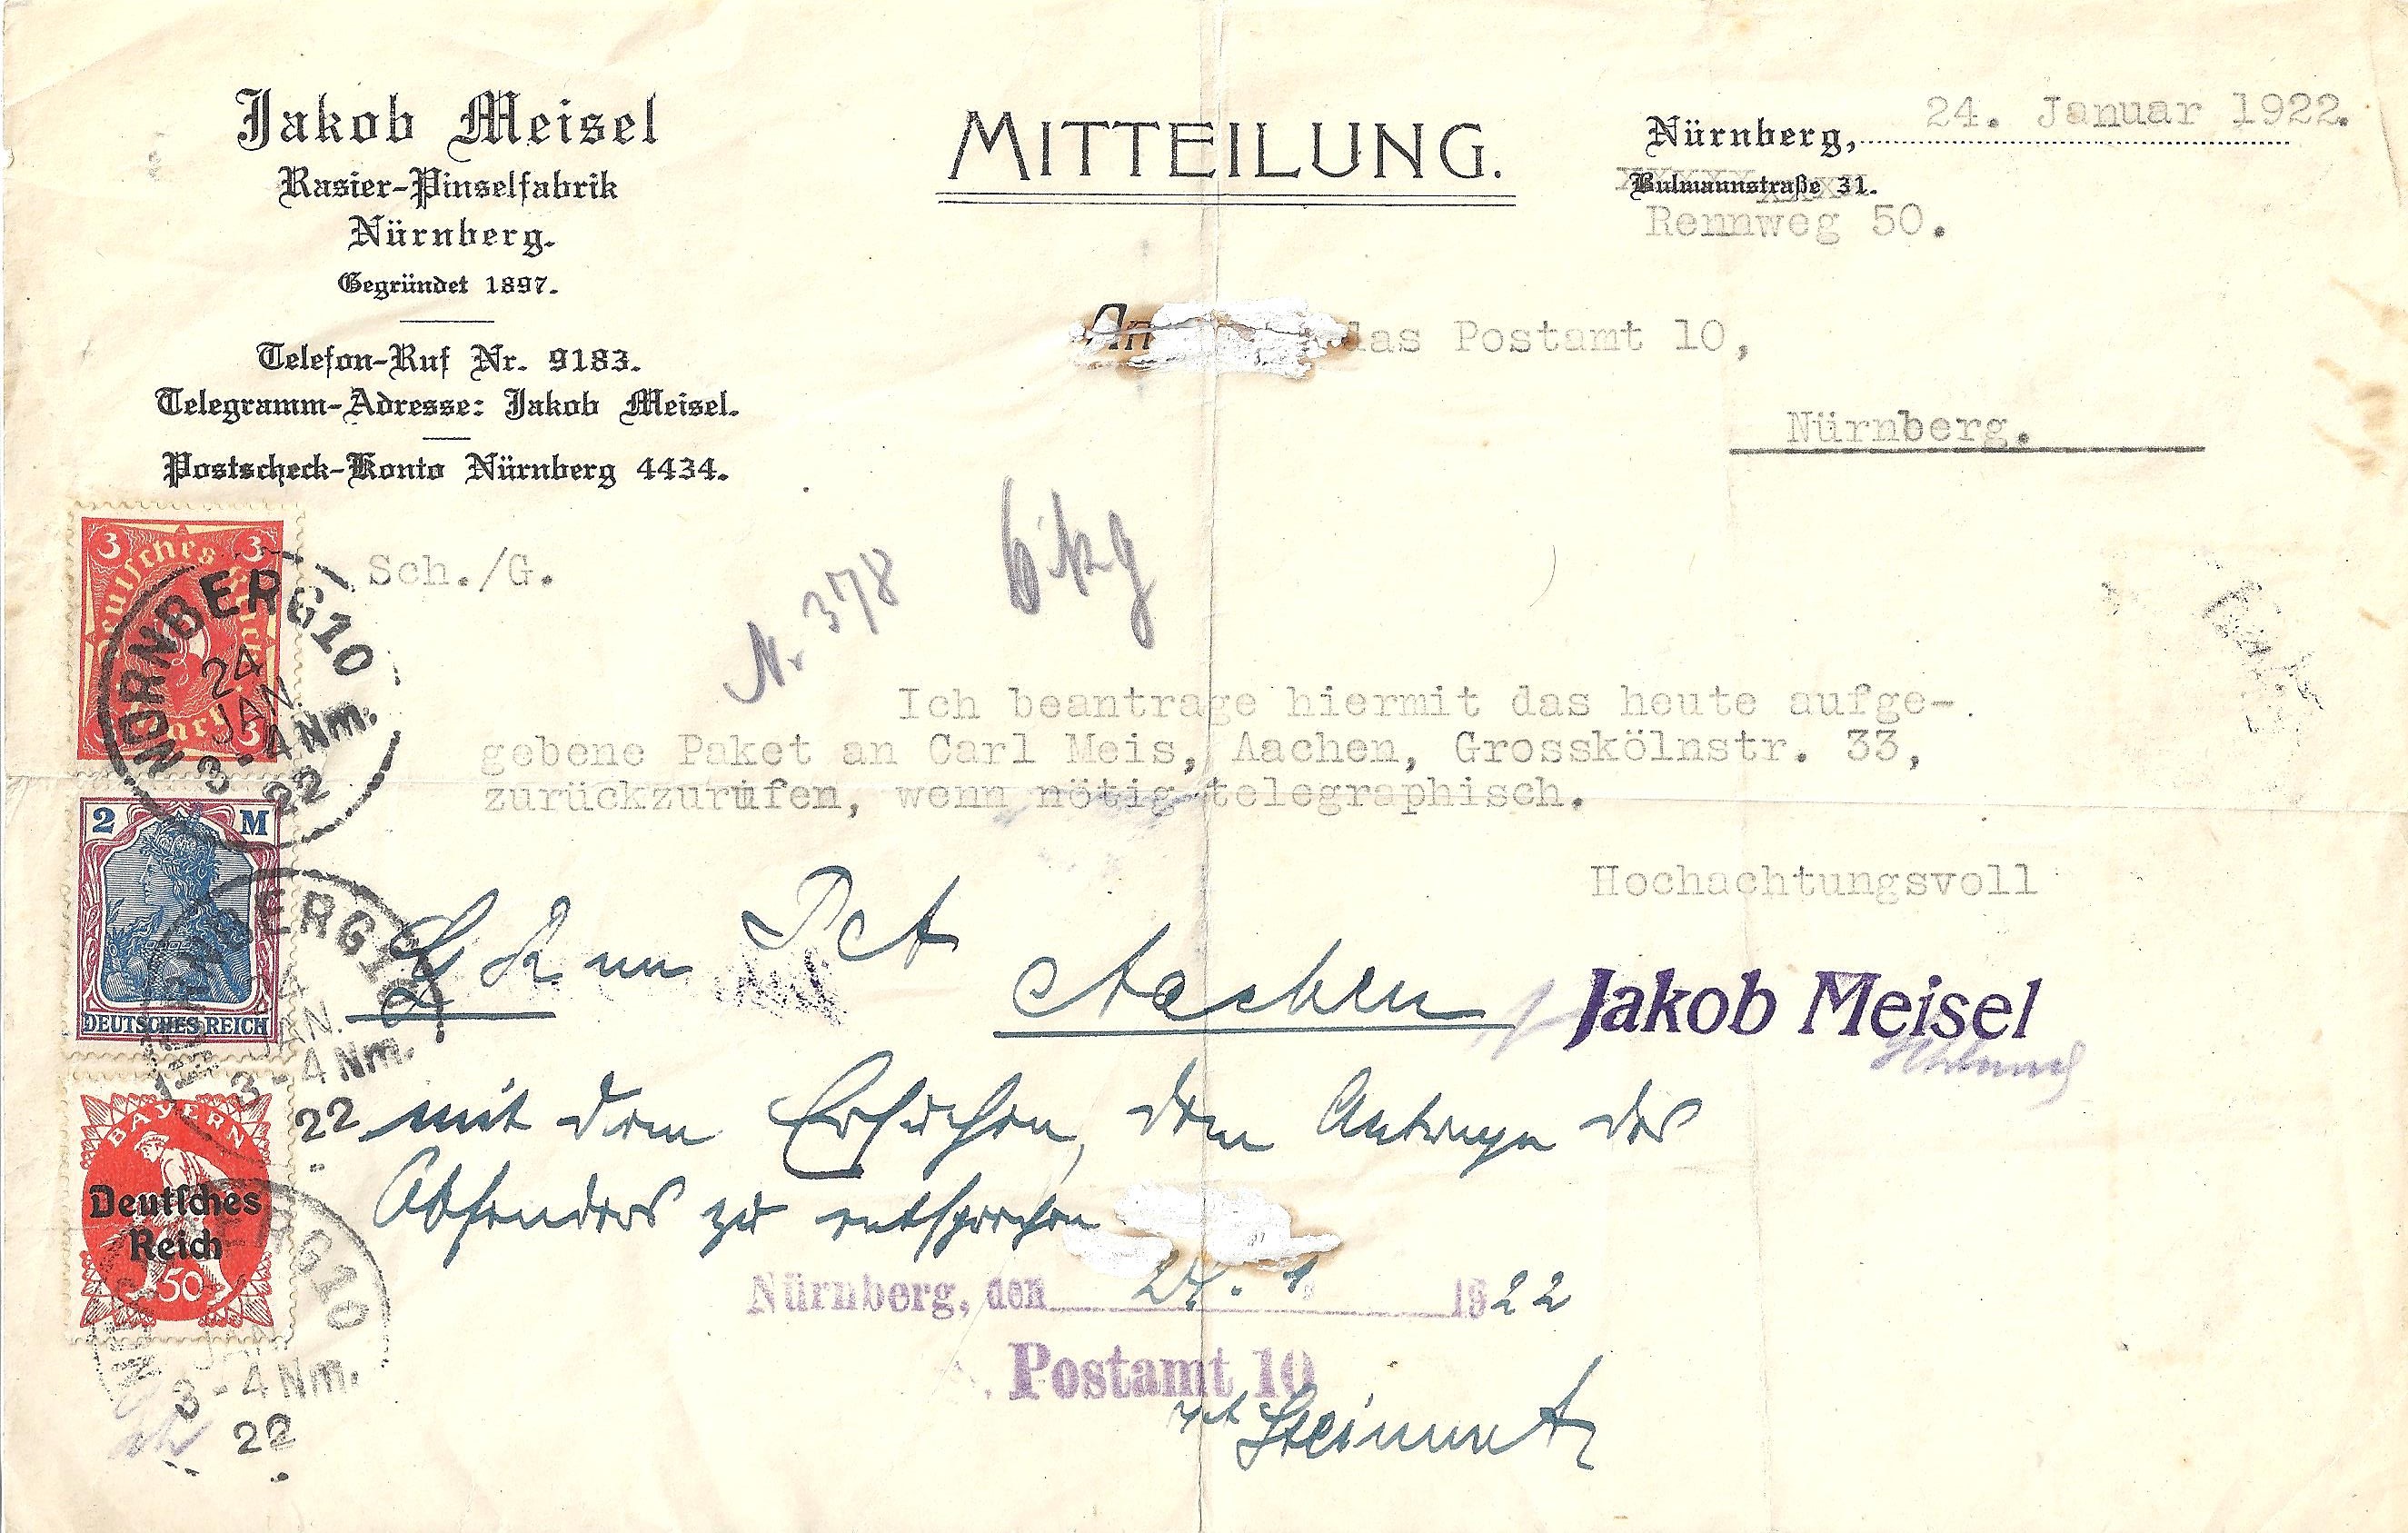 Jakob Meisel
Rasier-Pinselfabrik
Nürnberg.
Gegründet 1897.
Telefon-Ruf Nr. 9183.
Telegramm-Adresse: Jakob Meisel.
Postscheck-Konto Nürnberg 4434.
MITTEILUNG.
Nürnberg, 24. Januar 1922.
Bulmannstraße 31.
Rennweg 50.
An das Postamt 10,
Nürnberg.
Sch./G.
Nr. 378 6 kg
Ich beantrage hiermit das heute aufge-
gebene Paket an Carl Meis, Aachen, Grosskölnstr. 33,
zurückzurufen, wenn nötig telegraphisch.
Hochachtungsvoll
Jakob Meisel
Aachen
mit dem Ersuchen, dem Antrage des
Absenders zu entsprechen
Nürnberg, den 24. 1. 1922
Postamt 10
3 Deutsches Reich 3
3 Mark 3
NÜRNBERG 10
24
JAN.
3-4 Nm.
22
2 M
DEUTSCHES REICH
NÜRNBERG 10
24
JAN.
3-4 Nm.
22
BAYERN
Deutsches
Reich
50
NÜRNBERG 10
JAN
3-4 Nm.
22